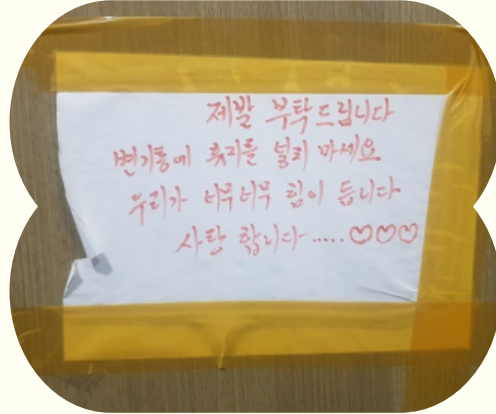 제발 부탁드립니다
변기통에 휴지를 마세요
우리가 너무너무 힘이 듭니다
사랑 합니다 .....♡♡♡